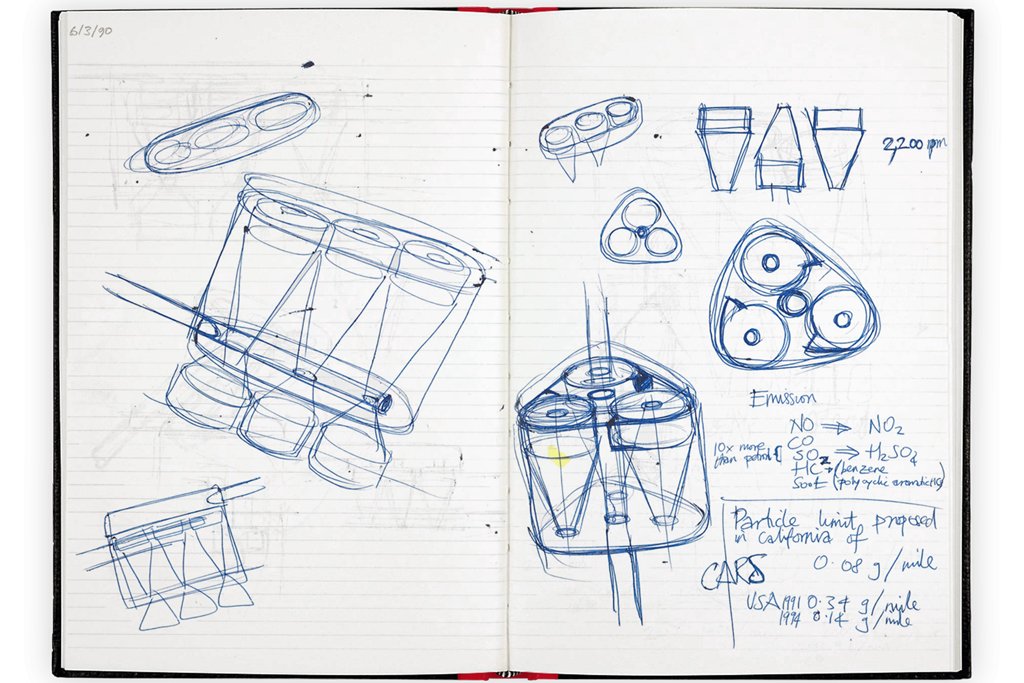 6/3/90
2,200 rpm
Emission
NO ⇒ NO2
CO
10x more
than petrol
SO2 ⇒ H2SO4
HC → (benzene
Soot (polycyclic aromatics)
Particle limit proposed
in California of
0.08 g/mile
CARS
USA 1991 0.34 g/mile
1994 0.14 g/mile